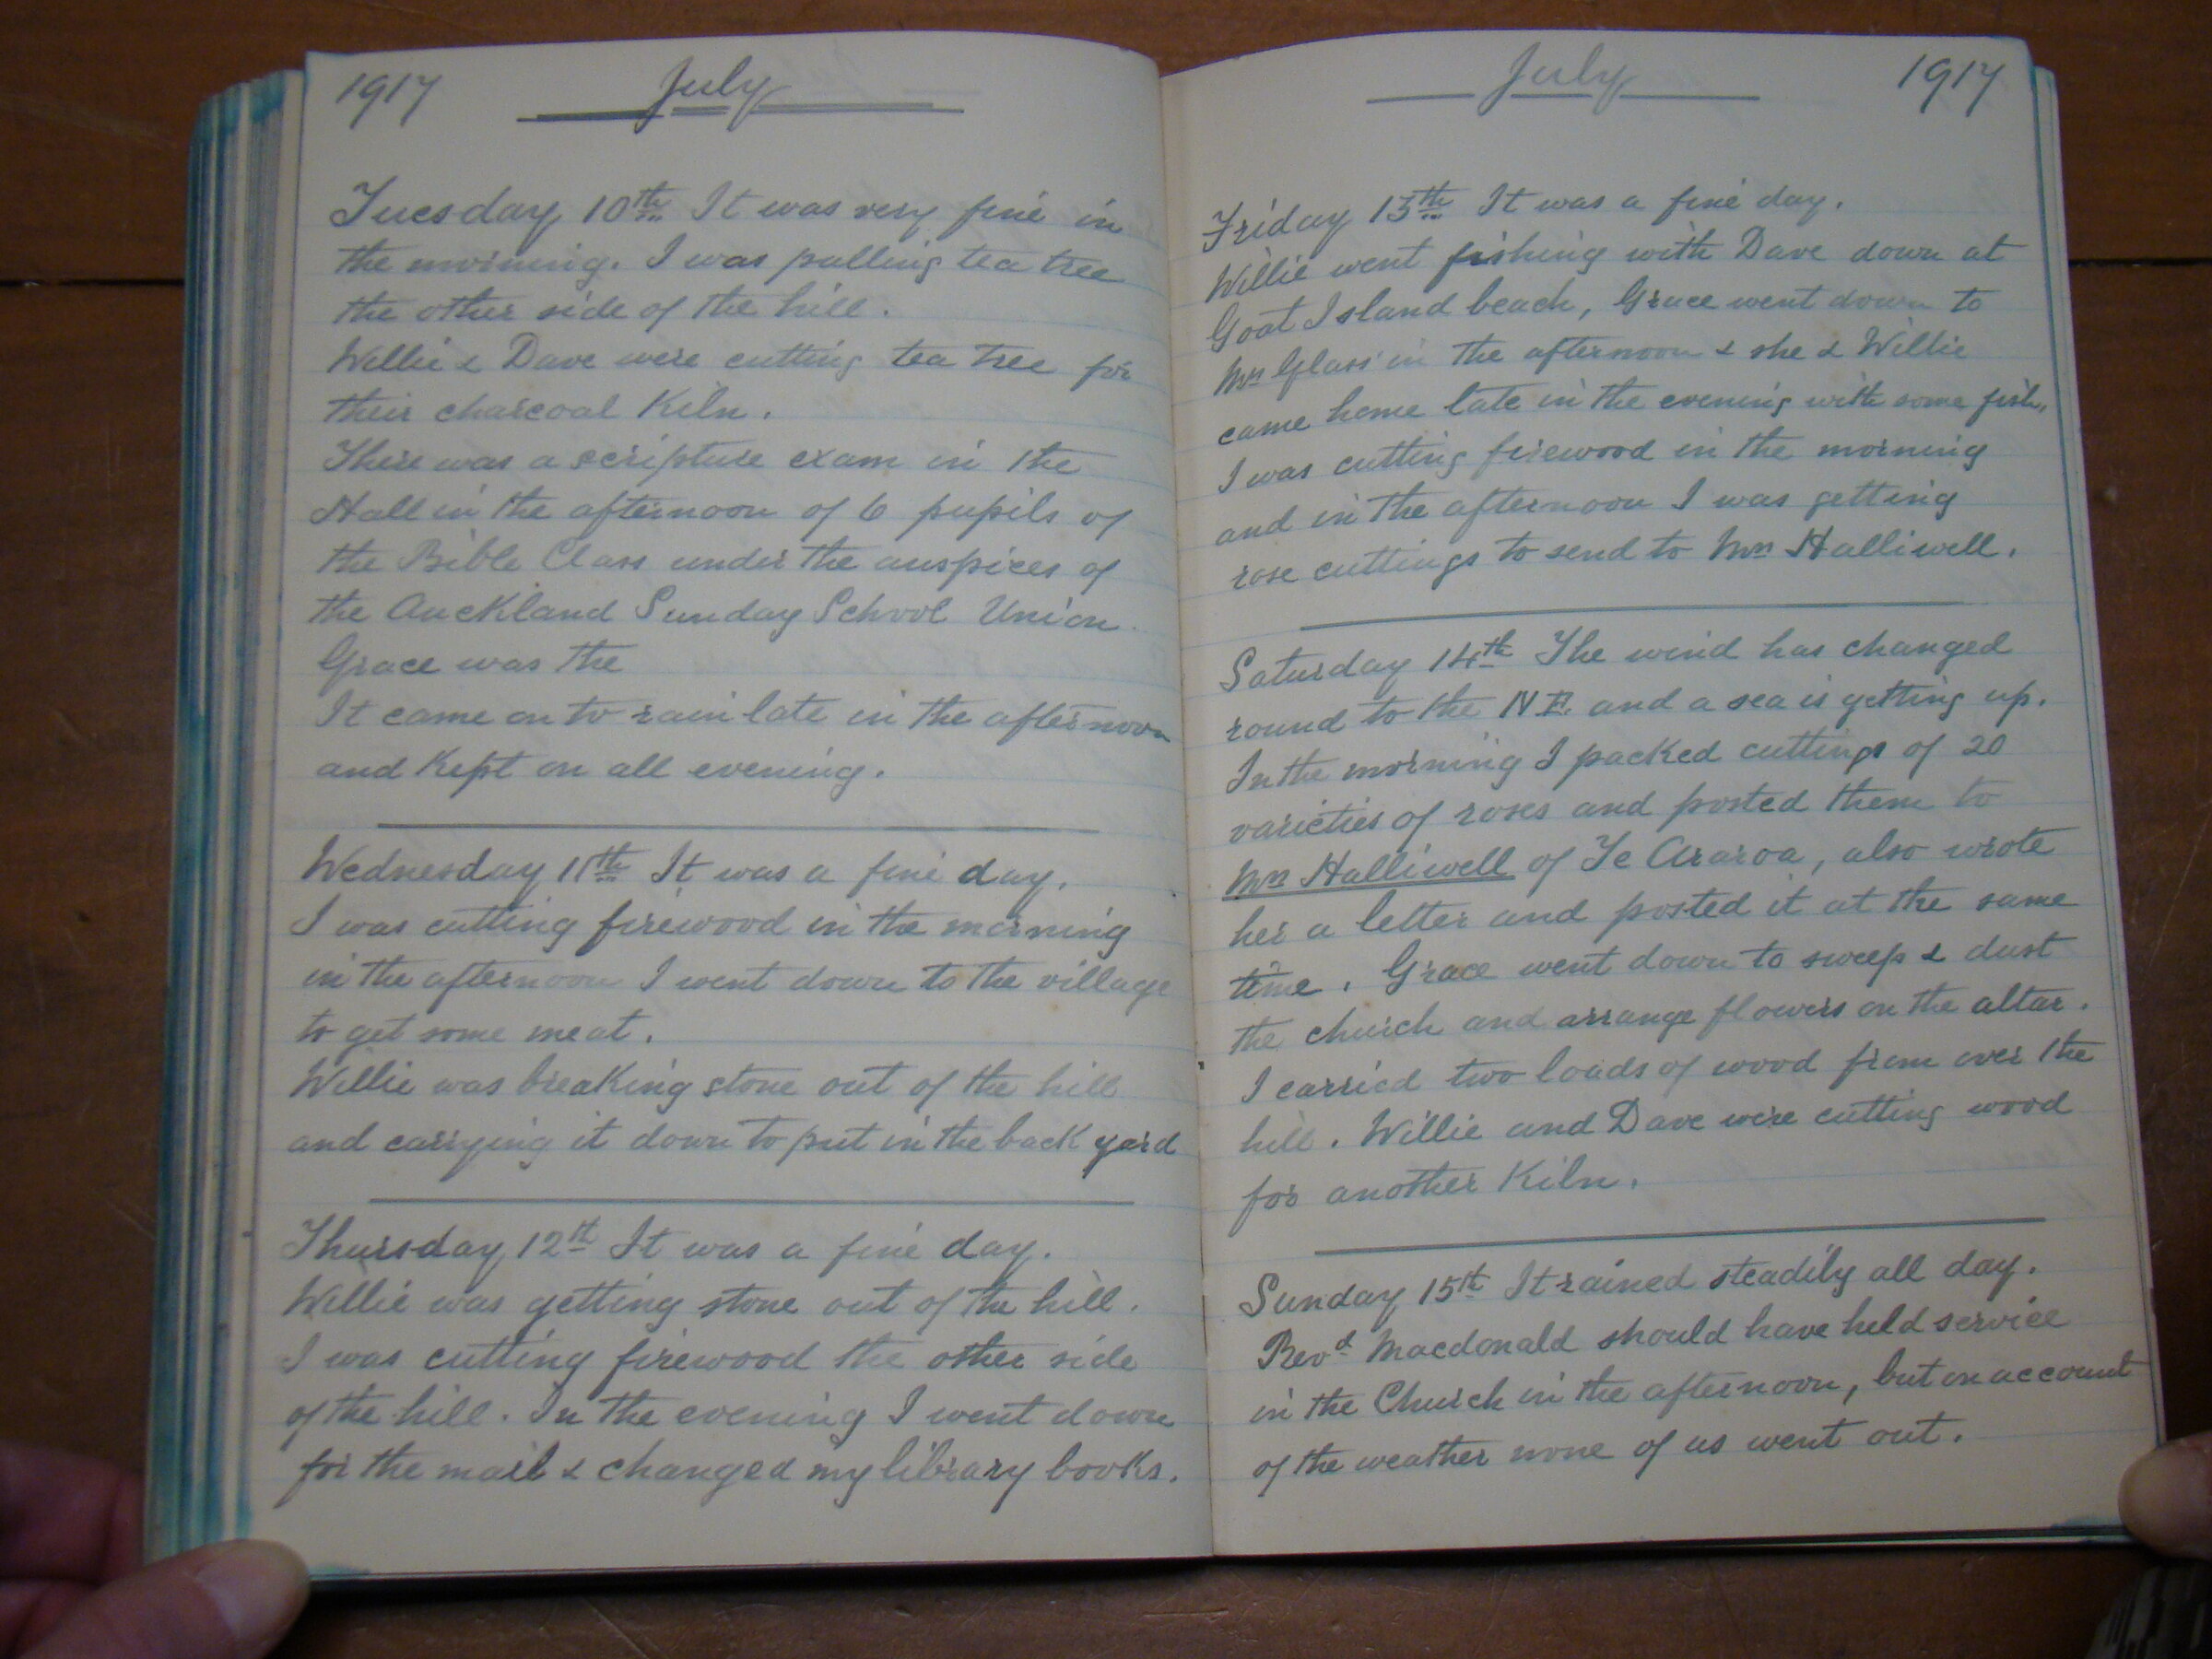 1917 July
Tuesday 10th It was very fine in
the morning. I was pulling tea tree
the other side of the hill.
Willie & Dave were cutting tea tree for
their charcoal Kiln.
There was a scripture exam in the
Hall in the afternoon of 6 pupils of
the Bible Class under the auspices of
the Auckland Sunday School Union.
Grace was the
It came on to rain late in the afternoon
and Kept on all evening.
Wednesday 11th It was a fine day.
I was cutting firewood in the morning
in the afternoon I went down to the village
to get some meat.
Willie was breaking stone out of the hill
and carrying it down to put in the back yard
Thursday 12th It was a fine day.
Willie was getting stone out of the hill.
I was cutting firewood the other side
of the hill. In the evening I went down
for the mail & changed my library books.
July 1917
Friday 13th It was a fine day.
Willie went fishing with Dave down at
Goat Island beach, Grace went down to
Mrs Glass' in the afternoon & she & Willie
came home late in the evening with some fish,
I was cutting firewood in the morning
and in the afternoon I was getting
rose cuttings to send to Mrs Halliwell.
Saturday 14th The wind has changed
round to the N E. and a sea is getting up.
In the morning I packed cuttings of 20
varieties of roses and posted them to
Mrs Halliwell of Te Araroa, also wrote
her a letter and posted it at the same
time. Grace went down to sweep & dust
the church and arrange flowers on the altar.
I carried two loads of wood from over the
hill. Willie and Dave were cutting wood
for another Kiln.
Sunday 15th It rained steadily all day.
Revd Macdonald should have held service
in the Church in the afternoon, but on account
of the weather none of us went out.